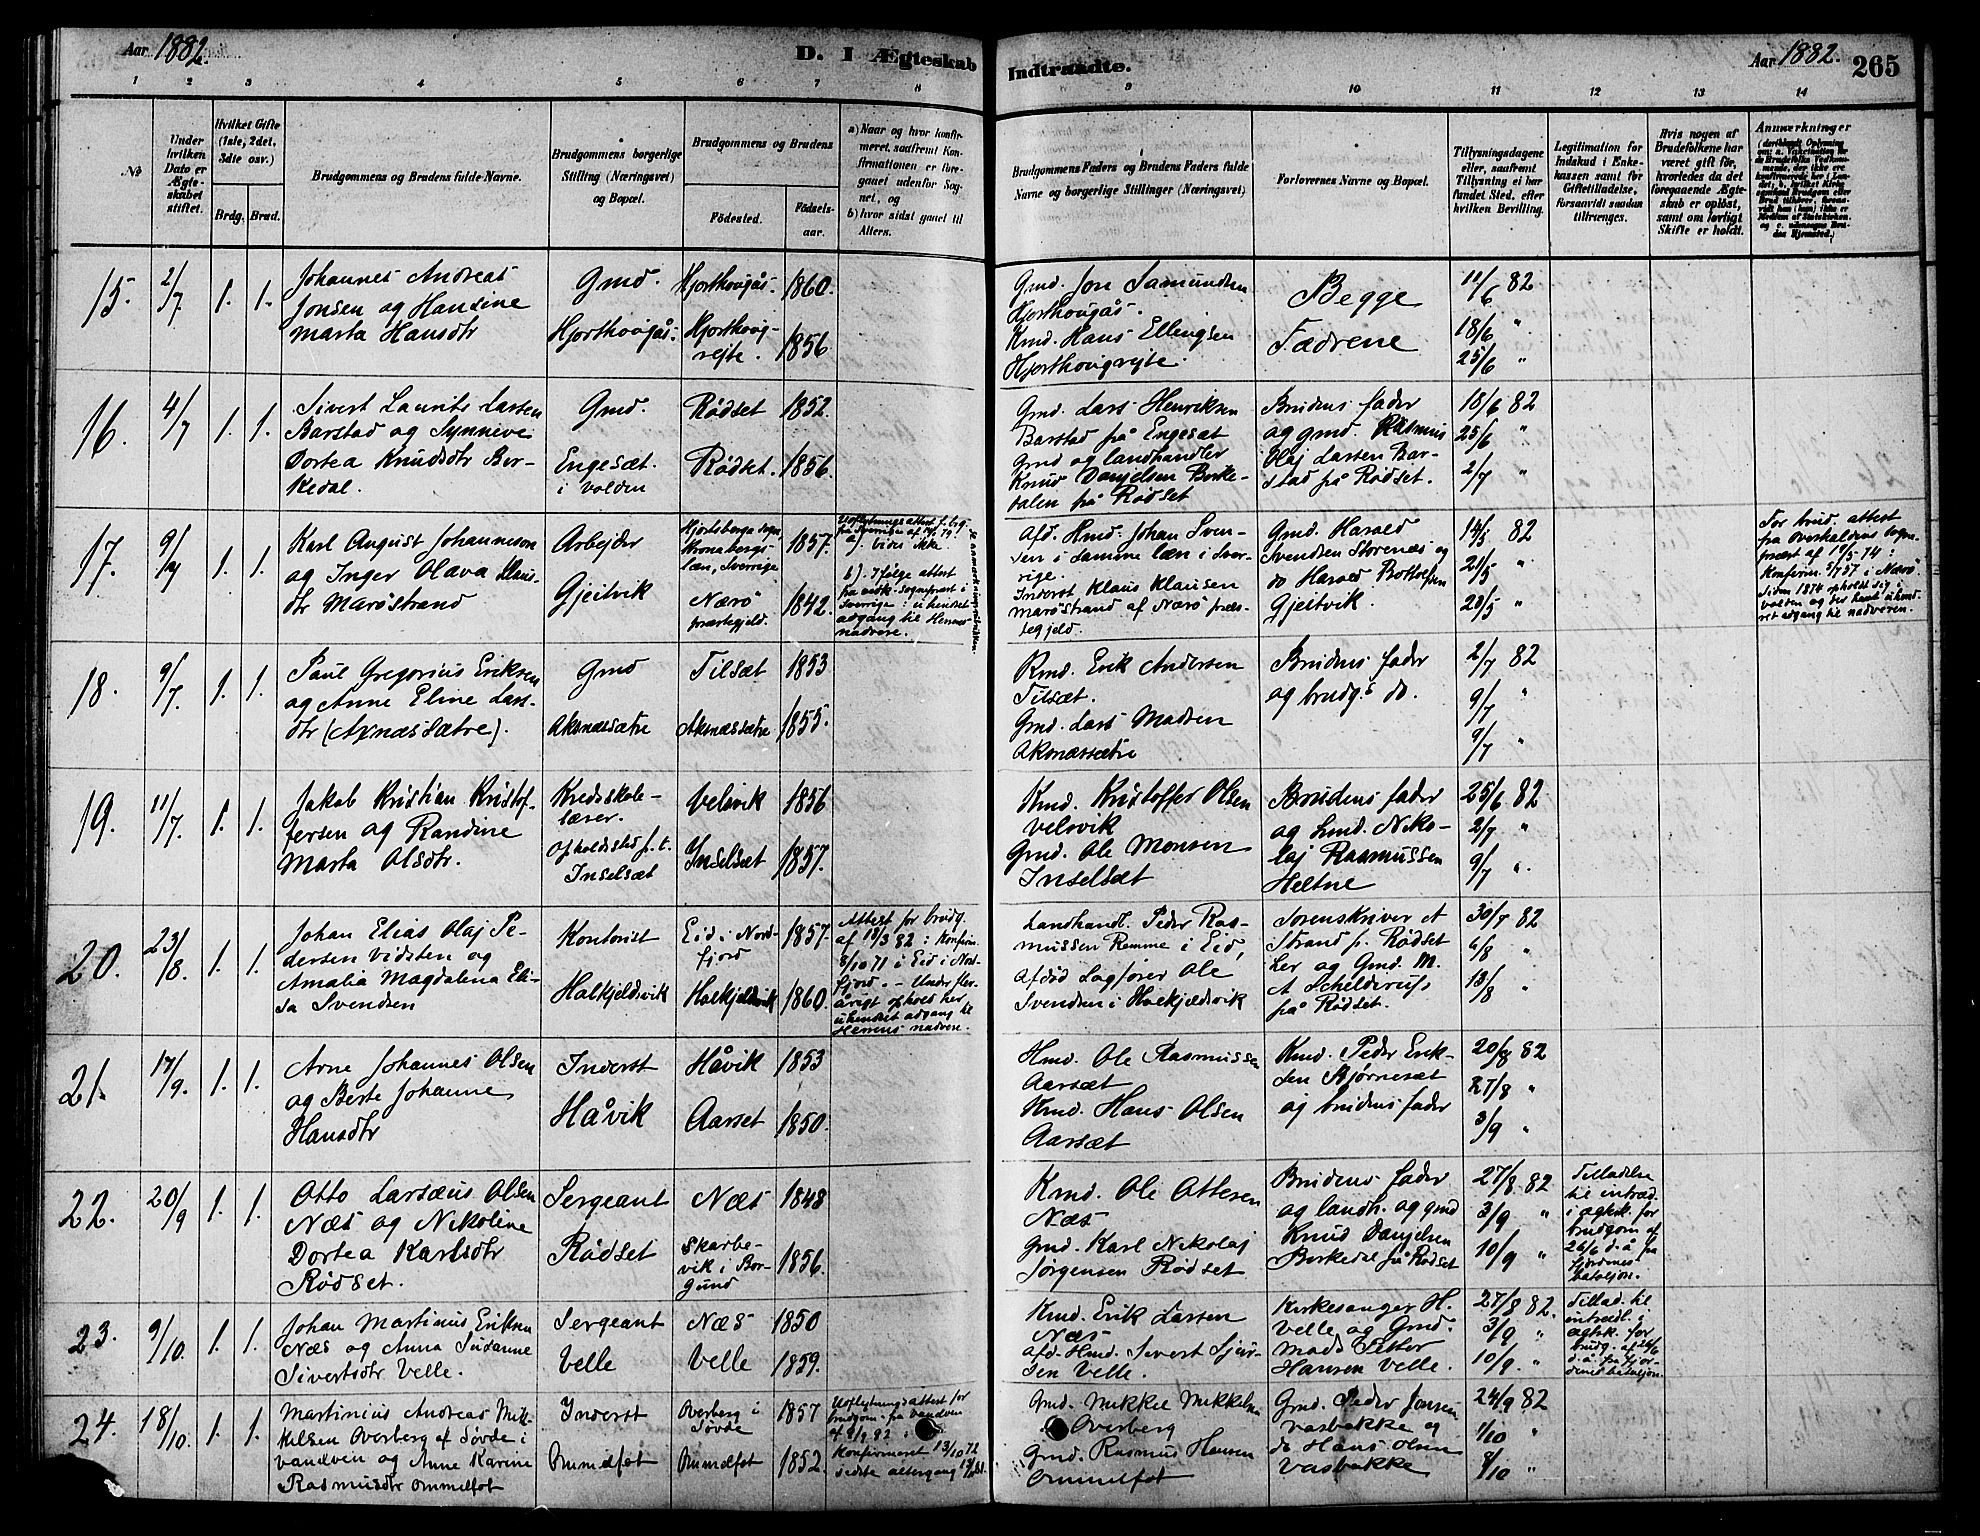 Aar 1882.
D. I Ægteskab
1 2 3 4 5 6 7 8
№
Under hvilken Dato er Ægteskabet stiftet.
Hvilket Gifte (1ste, 2det, 3die osv.)
Brdg. Brud.
Brudgommens og Brudens fulde Navne.
Brudgommens borgerlige Stilling (Næringsvei) og Bopæl.
Brudgommens og Brudens
Fødested.
Fødselsaar.
a) Naar og hvor konfirmeret, saafremt Konfirmationen er foregaaet udenfor Sognet, og
b) hvor sidst gaaet til Alters.
Indtraadte.
Aar 1882. 265
9 10 11 12 13 14
Brudgommens Faders og Brudens Faders fulde Navne og borgerlige Stillinger (Næringsvei)
Forlovernes Navne og Bopæl.
Tillysningsdagene eller, saafremt Tillysning ei har fundet Sted, efter hvilken Bevilling.
Legitimation for Indskud i Enkekassen samt for Giftetilladelse, forsaavidt saadan tiltrænges.
Hvis nogen af Brudefolkene har været gift før, hvorledes da det foregaaende Ægteskab er opløst, samt om lovligt Skifte er holdt.
Anmærkninger
15. 2/7 1. 1.
Johannes Andreas
Jonsen og Hansine
Marta Hansdtr
Gmd.
Hjorthovigås.
Hjorthovigås. 1860.
Hjorthovig-
rejte. 1856
Gmd. Jon Samundsen
Hjorthovigås.
Kmd. Hans Ellingsen
Hjorthovigrejte.
Begge
Fædrene
11/6 82
18/6 "
25/6 "
16. 4/7 1. 1.
Sivert Laurits Larsen
Barstad og Synneve
Dortea Knudsdtr Ber-
kedal.
Gmd.
Engesæt.
i Volden
Rødset 1852.
Rødset. 1856.
Gmd. Lars Henriksen
Barstad på Engesæt
Gmd og landhandler
Knud Danjelsen Berke-
dalen på Rødset
Brudens fader
og gmd. Rasmus
Olaj Larsen Bar-
stad på Rødset.
18/6 82
25/6 "
2/7 "
17. 9/7 1. 1.
Karl August Johanneson
og Inger Olava Klaus-
dtr Marøstrand
Arbejder
Gjeitvik
Hjortsberga sogn
Kronobergs-
læn, Sverrige 1857.
Nærø
præstegjeld. 1842.
a). Vides ikke
b). Ifølge attest
fra vedk. sognepræst i
Sverrige: uhindret
adgang til Herrens
nadvere.
Afd. Hmd. Johan Sven-
sen i samme læn i Sver-
rige.
Inderst Klaus Klausen
Marøstrand af Nærø præs-
tegjeld.
Gmd. Harald
Svendsen Storenæs og
do Harald Bottolfsen
Gjeitvik.
14/5 82
21/5 "
28/5 "
For brud. attest
fra Overhaldens sogne-
præst af 19/5 74:
Konfirm. 5/7 57 i Nærø.
Siden 1874 opholdt sig i
Volden og der havt uhind-
ret adgang til nadveren.
18. 9/7 1. 1.
Paul Gregorius Eriksen
og Anne Eline Lars-
dtr (Axnæssætre).
Gmd
Aksnæssætre
Tilsæt 1853
Aksnæssætre 1855.
Kmd. Erik Andersen
Tilsæt.
Gmd. Lars Madsen
Aksnæssætre
Brudens fader
og brudg.s do.
2/7 82
9/7 "
9/7 "
19. 11/7. 1. 1.
Jakob Kristian Kristof-
fersen og Randine
Marta Olsdtr.
Kredsskole-
lærer.
Opholdssted p.t.
Inselsæt
Velsvik 1856
Inselsæt 1857.
Kmd. Kristoffer Olsen
Velsvik
Gmd. Ole Monsen
Inselsæt
Brudens fader
og Gmd. Niko-
laj Rasmussen
Heltne
25/6 82
2/7 "
9/7 "
20. 23/8. 1. 1.
Johan Elias Olaj Pe-
dersen Vidsten og
Amalia Magdalena Eli-
sa Svendsen
Kontorist
Halkjeldsvik
Eid i Nord-
fjord 1857.
Halkjeldsvik 1860.
Attest for brudg.
af 18/3 82: Konfirm.
8/10 71 i Eid i Nord-
fjord. - Under fler-
årigt ophold her
uhindret adgang til
Herrens nadvere.
Landhandl. Peder Ras-
mussen Remme i Eid,
Afdød Sagfører Ole
Svendsen i Halkjeldsvik
Sorenskriver A
Strand p. Rødset
her og Gmd. M.
A Schelderup
på Rødset.
30/7 82
6/8 "
13/8 "
21. 17/9. 1. 1.
Arne Johannes Olsen
og Berte Johanne
Hansdtr
Inderst
Håvik
Håvik 1853
Aarset 1850.
Hmd. Ole Rasmussen
Aarsæt
Kmd. Hans Olsen
Aarsæt
Kmd. Peder Erik-
sen Bjørnesæt
og brudens fader
20/8 82
27/8 "
3/9 "
22. 20/9 1. 1.
Otto Larsæus Olsen
Næs og Nikoline
Dortea Karlsdtr
Rødset.
Sergeant
Rødset
Næs 1848
Skarbe-
vik i Bor-
gund 1856.
Kmd. Ole Ottesen
Næs
Gmd. Karl Nikolaj
Jørgensen Rødset
Brudens fader
og landh. og gmd
Knud Danjelsen
Berkedal på Rødset
27/8 82
3/9 "
10/9 "
Tilladelse
til intræd.
i ægtsk. for
brudgom af
26/6 d.å. fra
Fjordenes
bataljon.
23. 9/10. 1. 1.
Johan Martinus Eriksen
Næs og Anna Susanne
Sivertsdtr Velle.
Sergeant
Velle
Næs 1850
Velle 1859.
Kmd. Erik Larsen
Næs
afd. Hmd. Sivert Sjur-
sen Velle.
Kirkesanger H.
Velle og Gmd.
Mads Petter
Hansen Velle.
27/8 82.
3/9 "
10/9. "
Tillad. til
intrædl. i
ægtsk. for
brudg. af 26/6
d.å. fra Fjor-
denes bataljon.
24. 18/10. 1. 1.
Martinius Andreas Mik-
kelsen Overberg af Søvde i
Vandven og Anne Karine
Rasmusdtr Ommelfot
Inderst
Ommelfot
Overberg i
Søvde 1857
Ommelfot 1852.
Udflytningsattest for
brudgom. fra Vandven
Konfirmeret 13/10 72
sidste altergang
Gmd. Mikkel Mikkelsen
Overberg
Gmd. Rasmus Hansen
Ommelfot
Gmd. Peder Jonsen
Vasbakke og
do Hans Olsen
Vasbakke
24/9 82
1/10 "
8/10 "